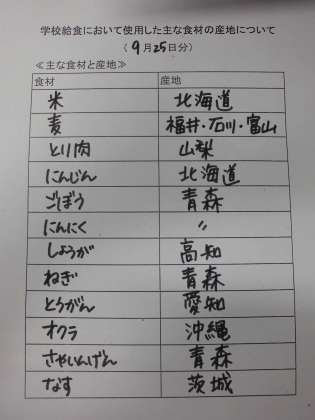 学校給食において使用した主な食材の産地について
(9月25日分)
≪主な食材と産地≫
食材 産地
米 北海道
麦 福井・石川・富山
とり肉 山梨
にんじん 北海道
ごぼう 青森
にんにく 〃
しょうが 高知
ねぎ 青森
とうがん 愛知
オクラ 沖縄
さやいんげん 青森
なす 茨城